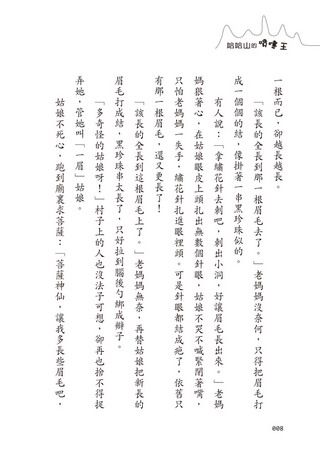 哈哈山的噴嚏王
一根而已，卻越長越長。
「該長的全長到那一根眉毛去了。」老媽媽沒奈何，只得把眉毛打
成一個個的結，像掛著一串黑珍珠似的。
有人說：「拿繡花針去刺吧，刺出小洞，好讓眉毛長出來。」老媽
媽狠著心，在姑娘眼皮上頭扎出無數個針眼，姑娘不哭不喊緊閉著嘴，
只怕老媽媽一失手，繡花針扎進眼裡頭。可是針眼都結成疤了，依舊只
有那一根眉毛，還又更長了！
「該長的全長到這根眉毛上了。」老媽媽無奈，再替姑娘把新長的
眉毛打成結，黑珍珠串太長了，只好拉到腦後勺綁成辮子。
「多奇怪的姑娘呀！」村子上的人也沒法子可想，卻再也捨不得捉
弄她，管她叫「一眉」姑娘。
姑娘不死心，跑到廟裏求菩薩：「菩薩神仙，讓我多長些眉毛吧，
008